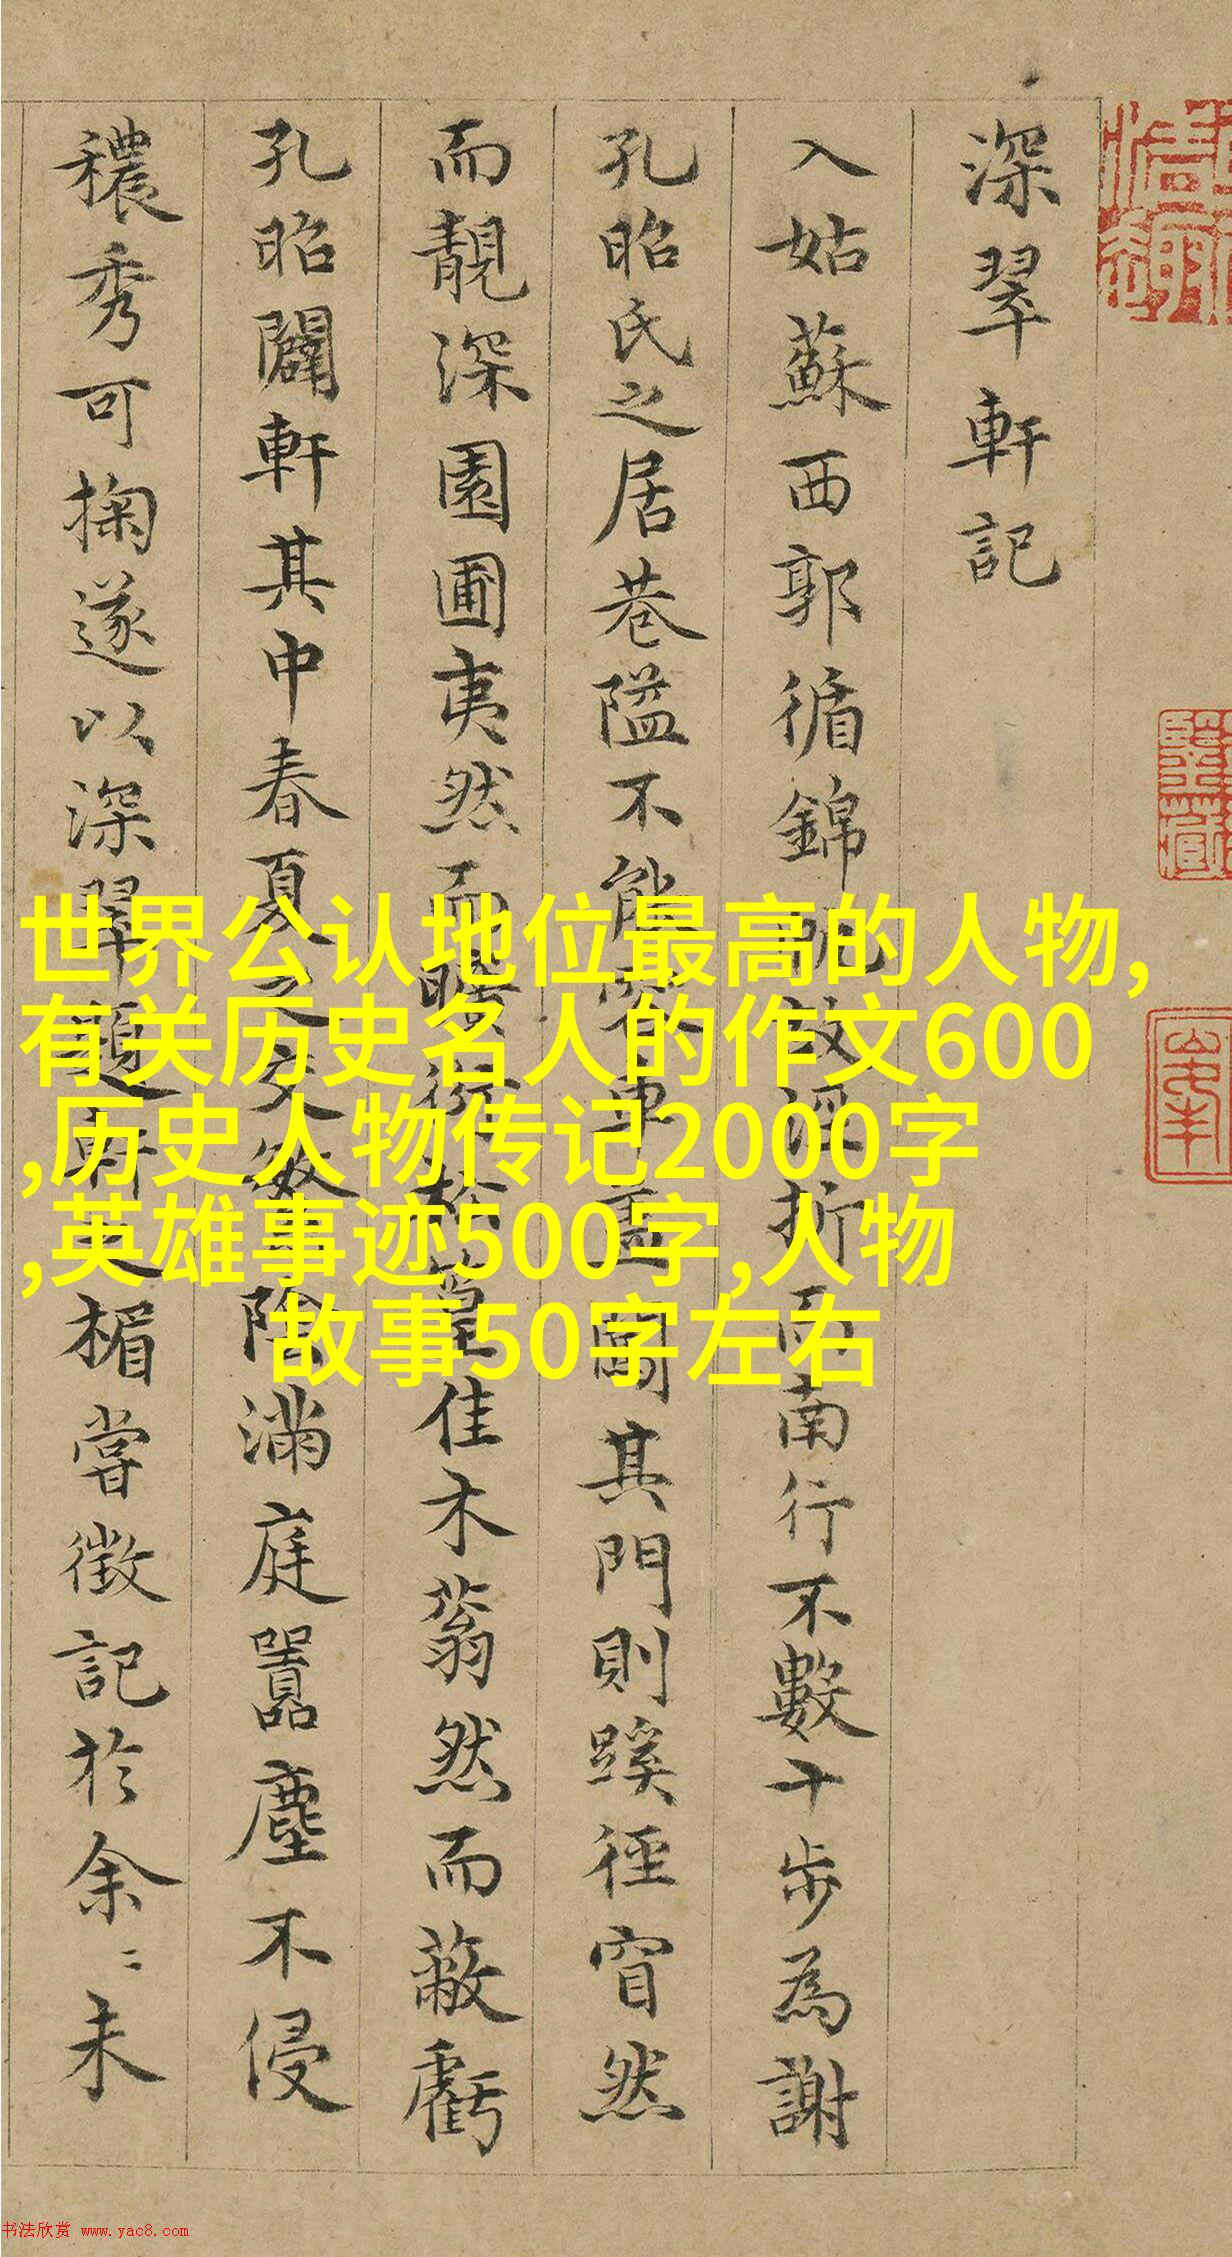 深翠軒記
入姑蘇西郭循錦帆故涇折而南行不數十步為謝
孔昭氏之居巷隘不能容車蓋其門則蹊徑窅然
而靚深園圃夷然而曠衍松篁佳木蓊然而蔽虧
孔昭闢軒其中春夏之交繁陰滿庭囂塵不侵
穠秀可掬遂以深翠題軒之楣嘗徵記於余〻未
世界公认地位最高的人物,
有关历史名人的作文600
,历史人物传记2000字
,英雄事迹500字,人物
故事50字左右
书法欣赏 www.yac8.com